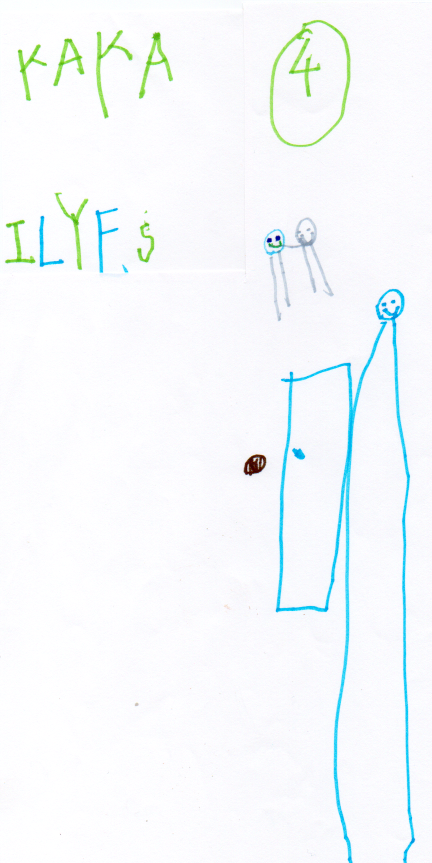 KAKA 4
ILYF.S